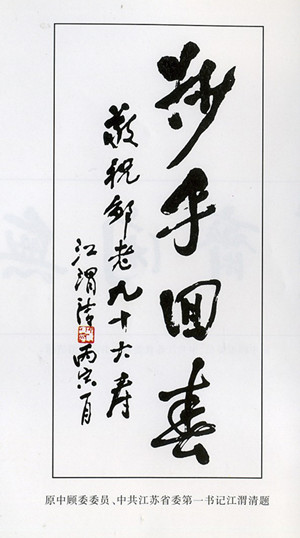 妙手回春
敬祝邹老九十大寿
江渭清 丙寅
原中顾委委员、中共江苏省委第一书记江渭清题